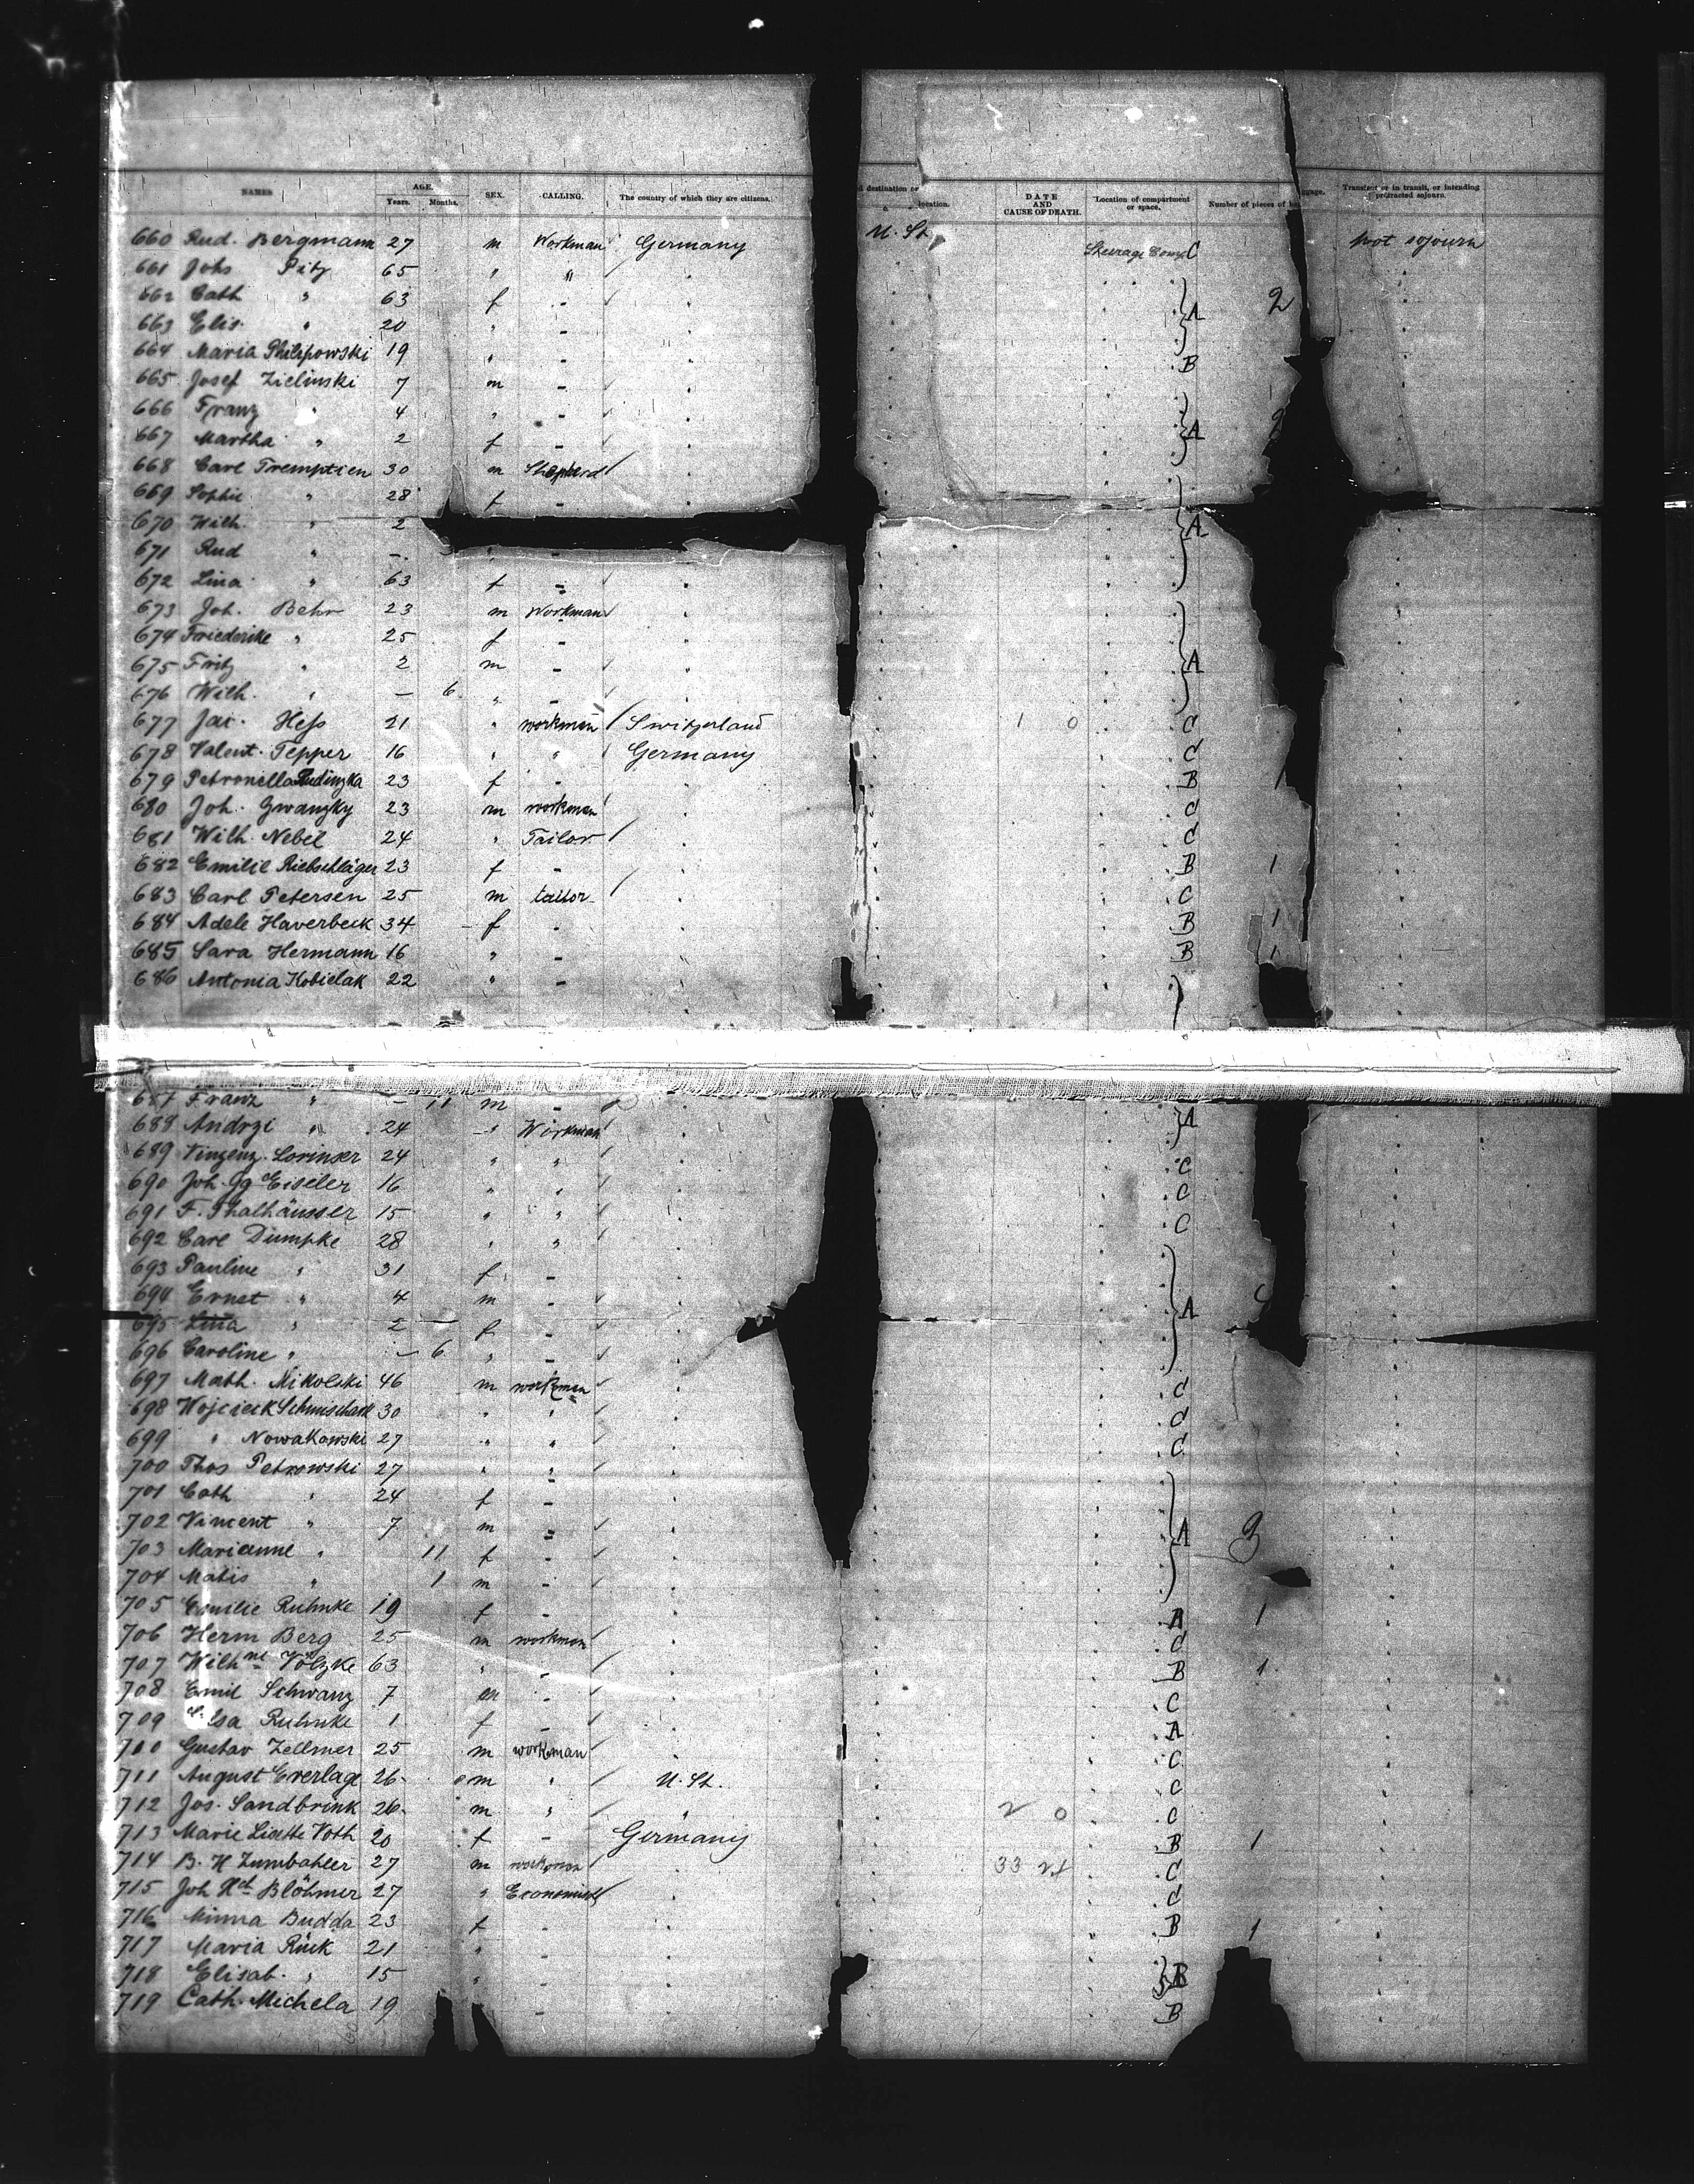 NAMES AGE. Years. Months. SEX. CALLING. The country of which they are citizens. destination or location. DATE AND CAUSE OF DEATH. Location of compartment or space. Number of pieces of Transient or in transit, or intending protracted sojourn.
660 Rud. Bergmann 27 m Workman Germany U. St. Steerage Comp C not sojourn
661 Johs Pitz 65 " "
662 Cath " 63 f - 2
663 Elis. " 20 " - A
664 Maria Philipowski 19 " - B
665 Josef Zielinski 7 m -
666 Franz " 4 " -
667 Martha " 2 f - A
668 Carl Tremptien 30 m Shepherd
669 Sophie " 28 f -
670 Wilh. " 2 A
671 Rud " -
672 Lina " 63 f -
673 Joh. Behr 23 m Workman
674 Friederike " 25 f -
675 Fritz " 2 m - A
676 Wilh. " - 6 " -
677 Jac. Hess 21 " workman Switzerland 1 0 C
678 Valent. Tepper 16 " " Germany C
679 Petronella 23 f - B 1
680 Joh. Gwanzky 23 m workman C
681 Wilh. Nebel 24 " Tailor C
682 Emilie Riebschläger 23 f - B 1
683 Carl Petersen 25 m tailor C
684 Adele Haverbeck 34 f - B 1
685 Sara Hermann 16 " - B 1
686 Antonia Kobielak 22 " -
687 Franz " - 11 m -
688 Andrzi " 24 " Workman A
689 Vinzenz Lorinser 24 " " C
690 Joh. Gg Eiseler 16 " " C
691 F. Thalhäusser 15 " " C
692 Carl Dumpke 28 " "
693 Pauline " 31 f -
694 Ernst " 4 m -
695 Lina " 2 f - A
696 Caroline " - 6 " -
697 Math. Mikolski 46 m workman C
698 Wojcieck 30 " " C
699 " Nowakowski 27 " " C
700 Thos Petrowski 27 " "
701 Cath " 24 f -
702 Vincent " 7 m - A 3
703 Marianne " 11 f -
704 Matis " 1 m -
705 Emilie Ruhnke 19 f - A 1
706 Herm Berg 25 m workman C
707 Wilhne Völzke 63 " - B 1
708 Emil Schwanz 7 m - C
709 Elsa Ruhnke 1 f - A
710 Gustav Zellmer 25 m workman C
711 August Everlage 26 m " U. St. C
712 Jos. Sandbrink 26 m " " 2 0 C
713 Marie Lisette Voth 20 f - Germany B 1
714 B. H Zumbahlen 27 m workman 33 C
715 Joh Hch Blöhmer 27 " Economist C
716 Minna Budda 23 f - B 1
717 Maria Rück 21 " -
718 Elisab. " 15 " - B
719 Cath. Michela 19 - B